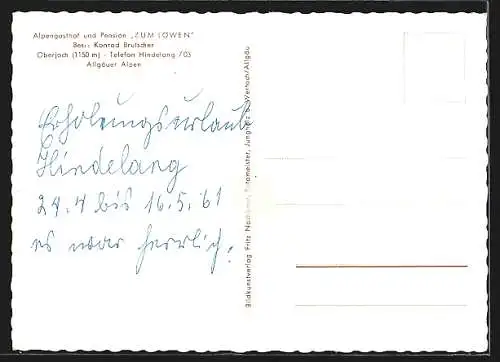 Alpengasthof und Pension „ZUM LÖWEN“
Bes.: Konrad Brutscher
Oberjoch (1150 m) - Telefon Hindelang 703
Allgäuer Alpen
Erholungsurlaub
Hindelang
24.4 bis 16.5.61
es war herrlich.
Bildkunstverlag Fritz Fotomeister, Jungholz b. Wertach/Allgäu